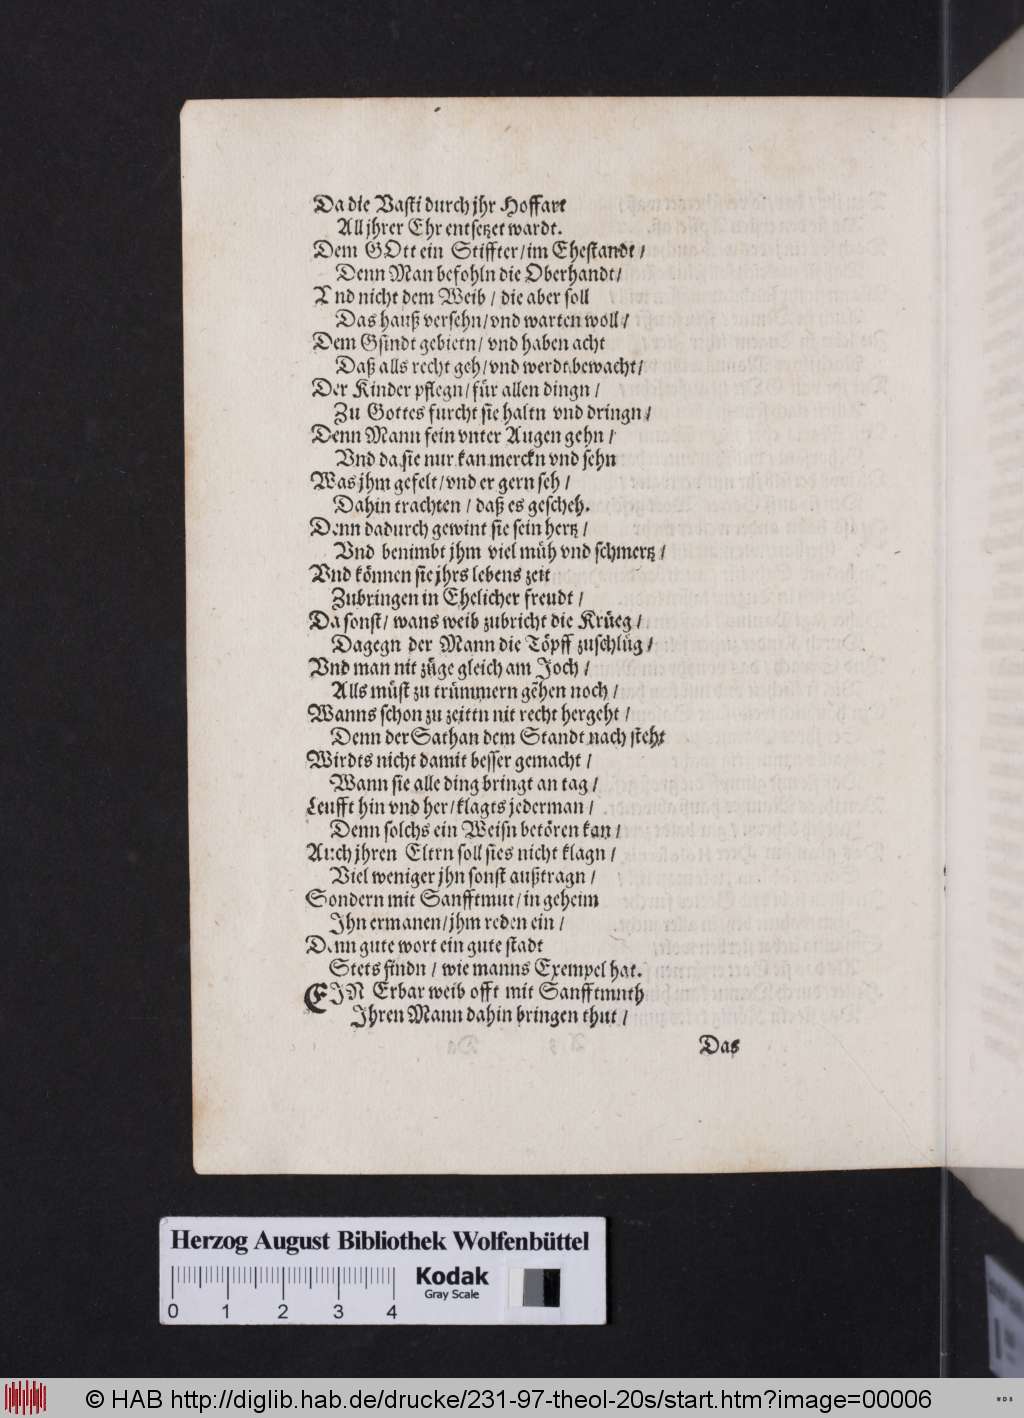 Da die Vasti durch jhr Hoffart
All jhrer Ehr entsetzet wardt.
Dem GOtt ein Stiffter/ im Ehestandt/
Denn Man befohln die Oberhandt/
Vnd nicht dem Weib/ die aber soll
Das hauß versehn/ vnd warten woll/
Dem Gsindt gebietn/ vnd haben acht
Daß alls recht geh/ vnd werdt bewacht/
Der Kinder pflegn/ für allen dingn/
Zu Gottes furcht sie haltn vnd dringn/
Denn Mann fein vnter Augen gehn/
Vnd da sie nur kan merckn vnd sehn
Was jhm gefelt/ vnd er gern seh/
Dahin trachten/ daß es gescheh.
Denn dadurch gewint sie sein hertz/
Vnd benimbt jhm viel müh vnd schmertz/
Vnd können sie jhrs lebens zeit
Zubringen in Ehelicher freudt/
Da sonst/ wans weib zubricht die Krüeg/
Dagegn der Mann die Töpff zuschlüg/
Vnd man nit züge gleich am Joch/
Alls müst zu trümmern gehen noch/
Wanns schon zu zeittn nit recht hergeht/
Denn der Sathan dem Standt nach steht
Wirdts nicht damit besser gemacht/
Wann sie alle ding bringt an tag/
Leufft hin vnd her/ klagts jederman/
Denn solchs ein Weisn betören kan/
Auch jhren Eltrn soll sies nicht klagn/
Viel weniger jhn sonst außtragn/
Sondern mit Sanfftmut/ in geheim
Jhn ermanen/ jhm reden ein/
Denn gute wort ein gute stadt
Stets findn/ wie manns Exempel hat.
EJN Erbar weib offt mit Sanfftmuth
Jhren Mann dahin bringen thut/
Das
Herzog August Bibliothek Wolfenbüttel
Kodak
Gray Scale
0 1 2 3 4
© HAB http://diglib.hab.de/drucke/231-97-theol-20s/start.htm?image=00006